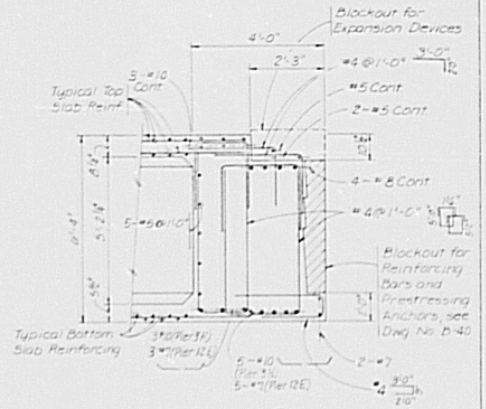 Blockout for
Expansion Devices
4'-0"
2'-3"
#4 @ 1'-0"
3'-0"
3-#10
Cont.
#5 Cont.
Typical Top
Slab Reinf.
2-#5 Cont.
4-#8 Cont.
5-#5@1'-0"
#4@1'-0"
Blockout for
Reinforcing
Bars and
Prestressing
Anchors, see
Dwg. No. B-40
Typical Bottom
Slab Reinforcing
3-#7(Pier 12E)
5-#10
5-#7(Pier 12E)
2-#7
#4
3'-0"
2'-0"